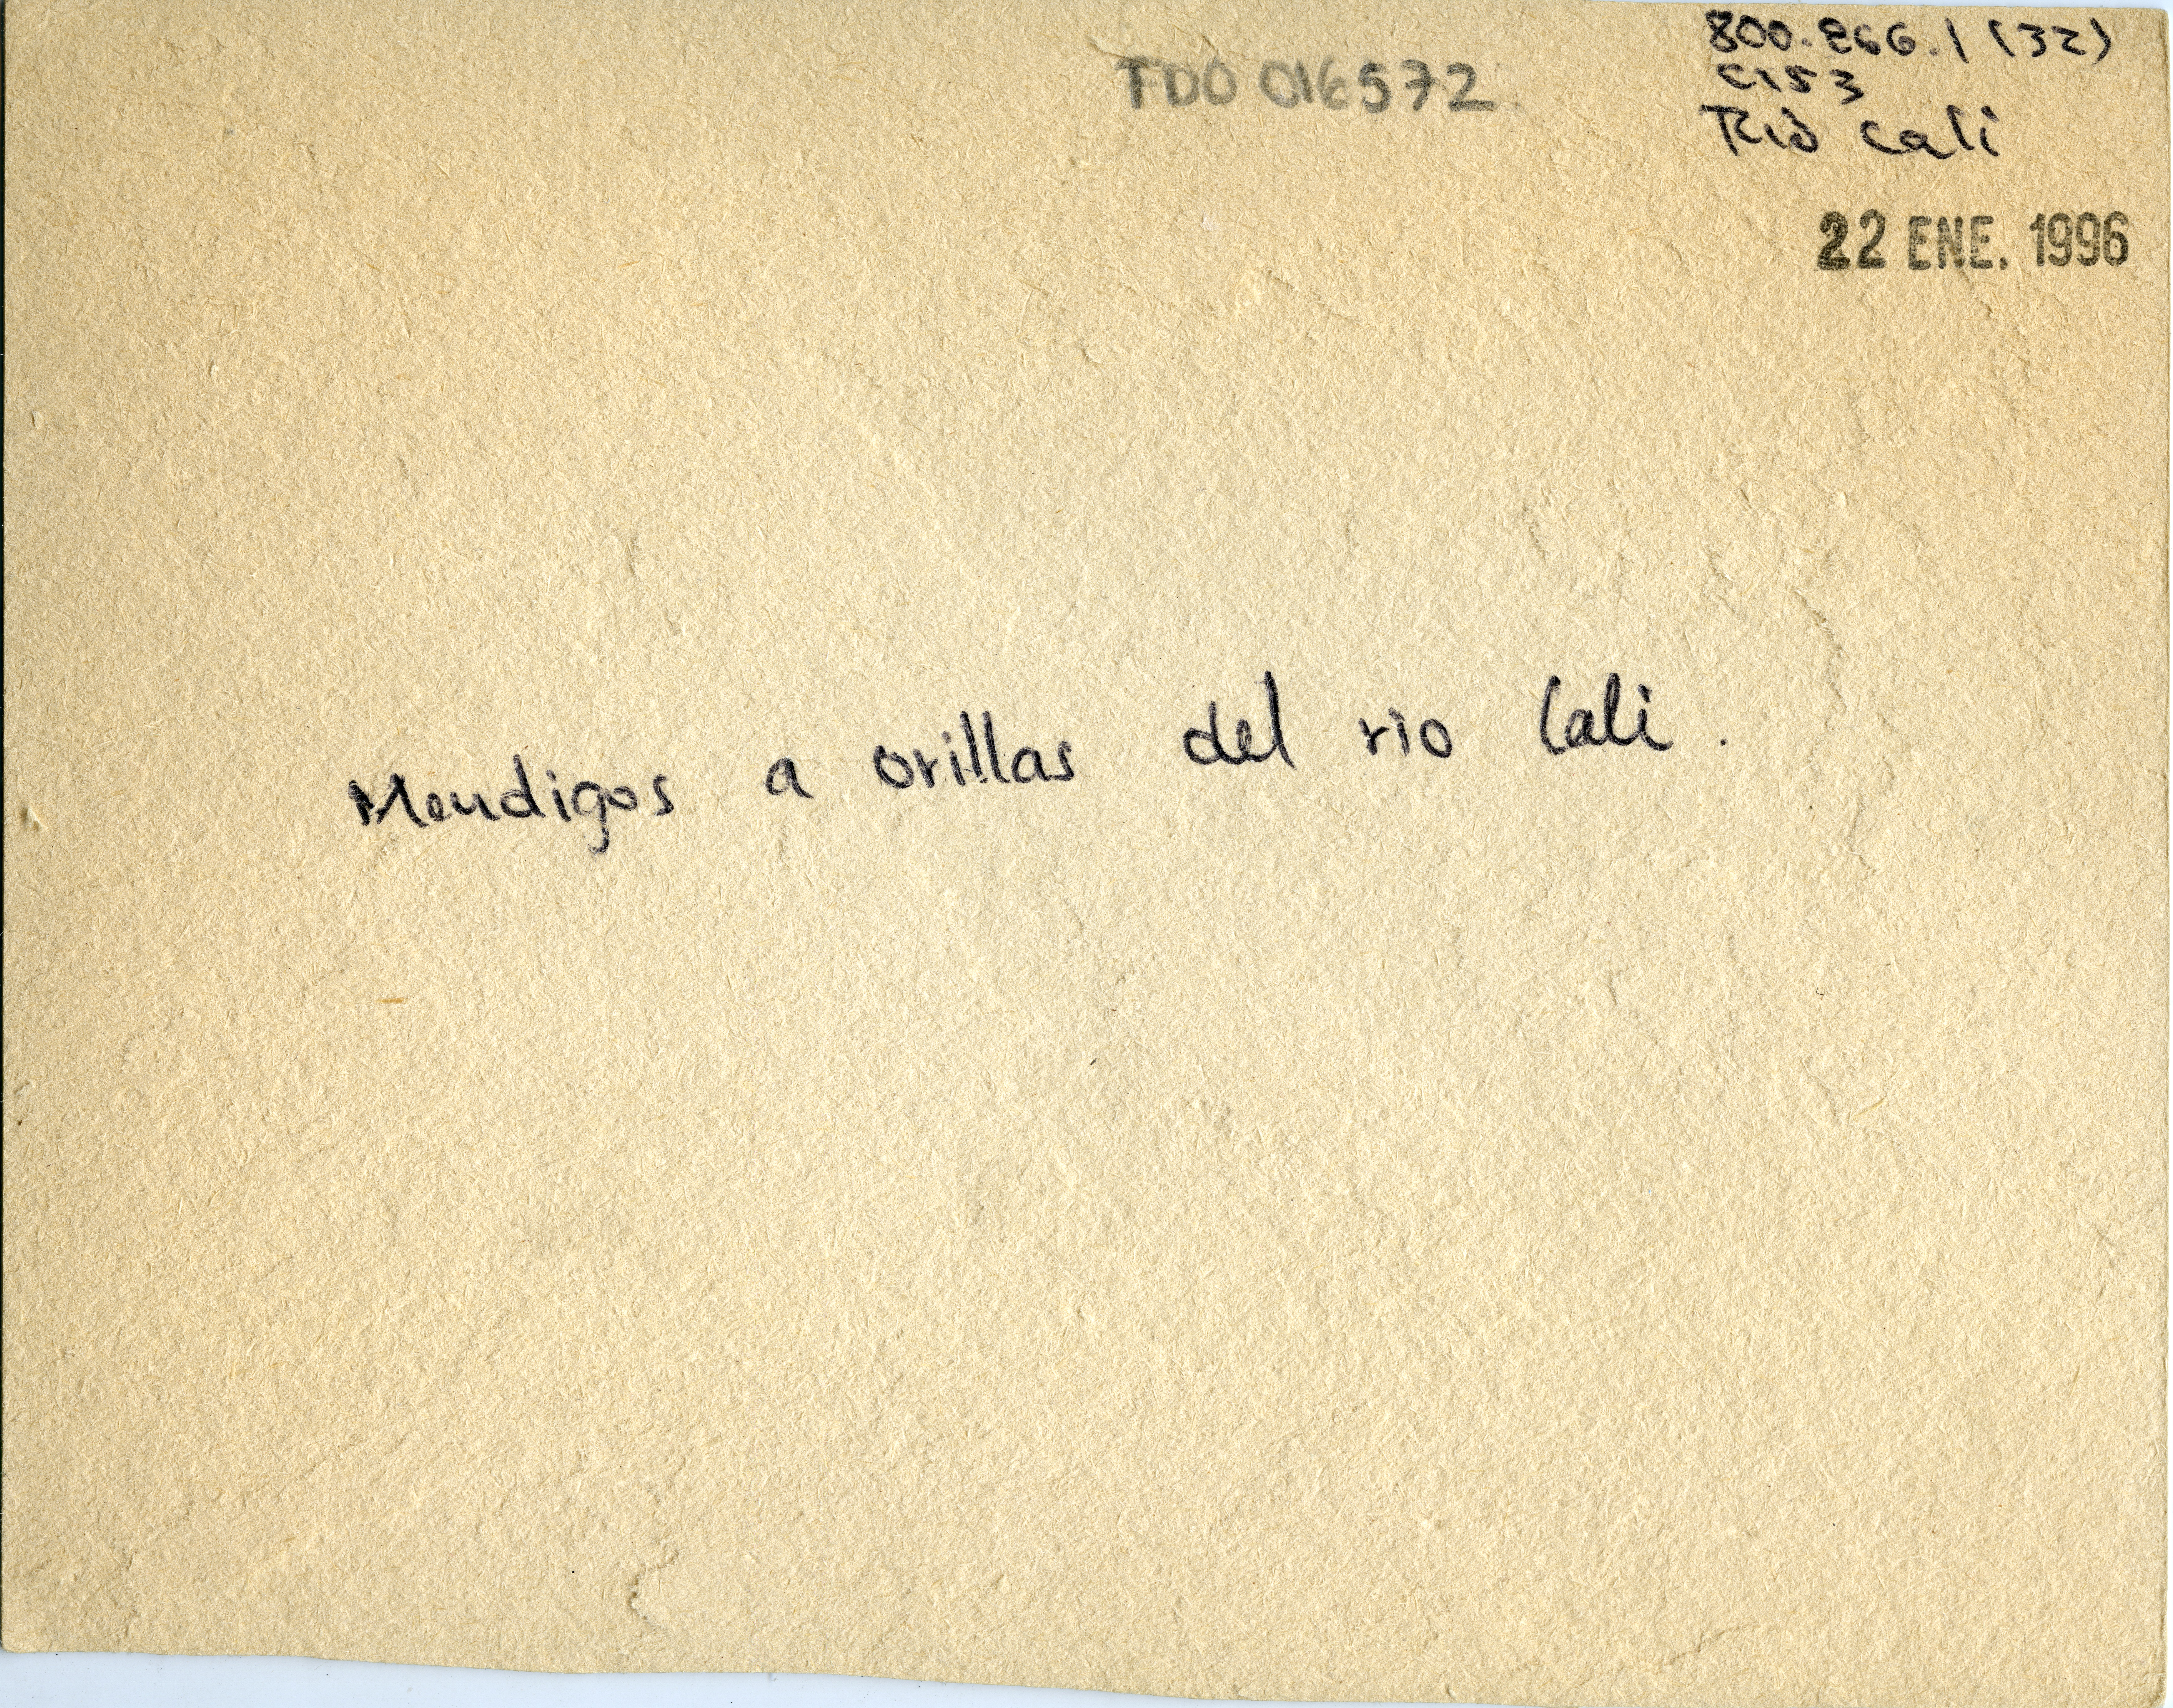 800.866.1 (32)
TDO 016572
C153
Rio Cali
22 ENE. 1996
Mendigos a orillas del rio Cali.